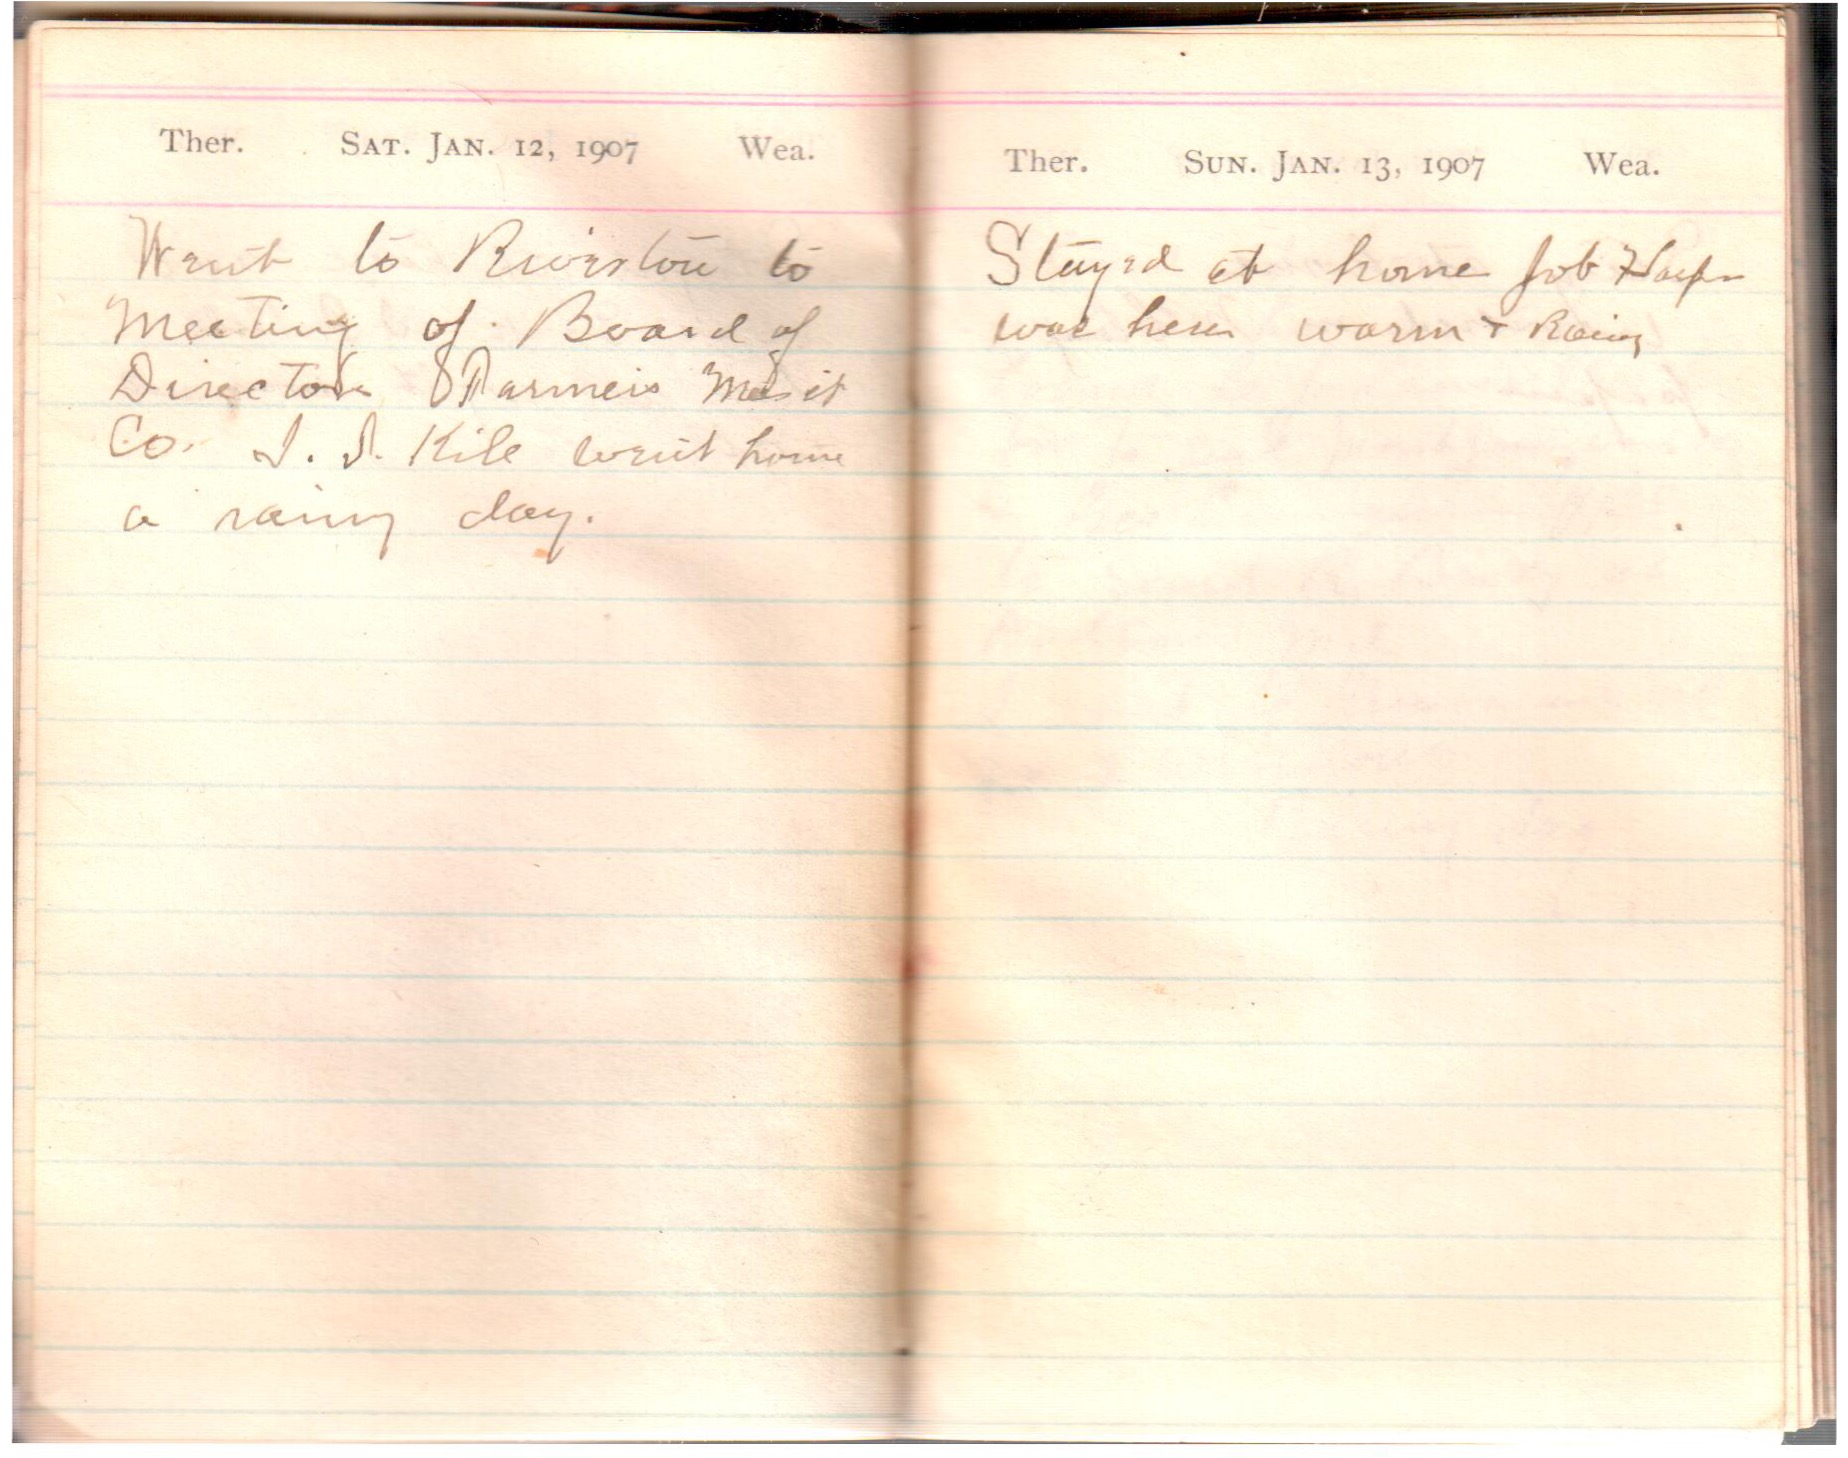 Ther. Sat. Jan. 12, 1907 Wea.
Went to Riverton to
Meeting of Board of
Directors Farmers
Co. I. I. Kile went home
a rainy day.
Ther. Sun. Jan. 13, 1907 Wea.
Stayed at home Job
was here warm & Rainy